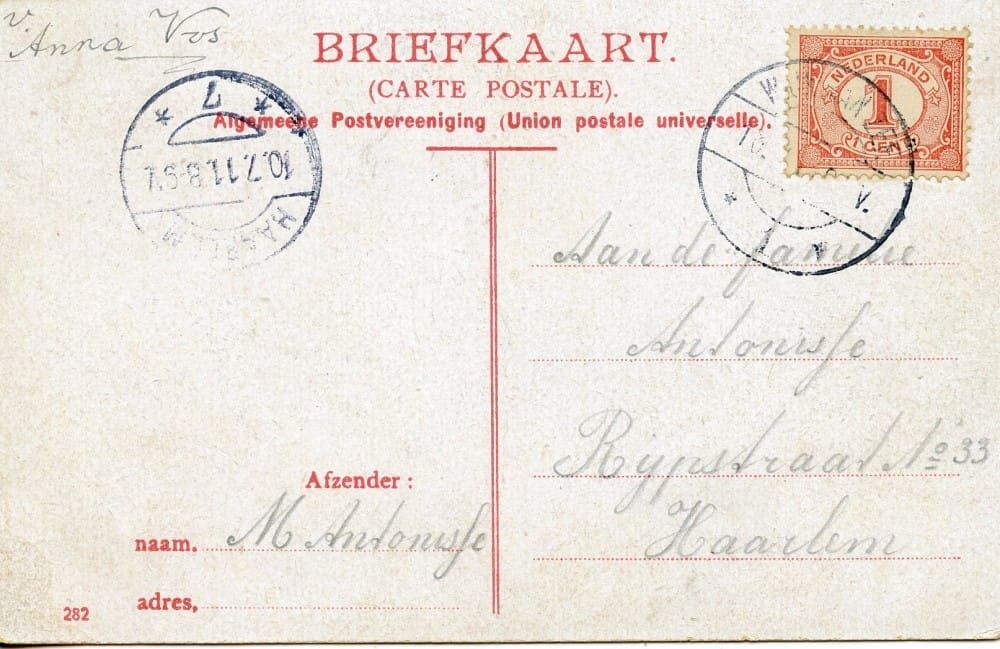 v
Anna Vos
BRIEFKAART.
(CARTE POSTALE).
Algemeene Postvereeniging (Union postale universelle).
NEDERLAND
1
1 CENT
7
10.7.11.8-9V.
HAARLEM
10.
V.
1
Aan de familie
Antonisse
Rijpstraat No 33
Haarlem
Afzender:
naam. M Antonisse
adres,
282